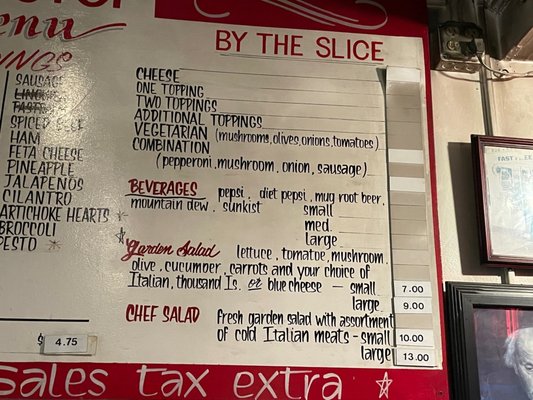 enu
BY THE SLICE
NINGS
SAUSAGE
SPICED BEEF
HAM
FETA CHEESE
PINEAPPLE
JALAPEÑOS
CILANTRO
ARTICHOKE HEARTS
BROCCOLI
PESTO
CHEESE
ONE TOPPING
TWO TOPPINGS
ADDITIONAL TOPPINGS
VEGETARIAN (mushrooms, olives, onions, tomatoes)
COMBINATION
(pepperoni, mushroom, onion, sausage)
BEVERAGES pepsi, diet pepsi, mug root beer,
mountain dew, sunkist small
med.
large
Garden Salad lettuce, tomatoe, mushroom,
olive, cucumber, carrots and your choice of
Italian, thousand Is. or blue cheese - small 7.00
large 9.00
CHEF SALAD fresh garden salad with assortment
of cold Italian meats - small 10.00
large 13.00
$ 4.75
sales tax extra